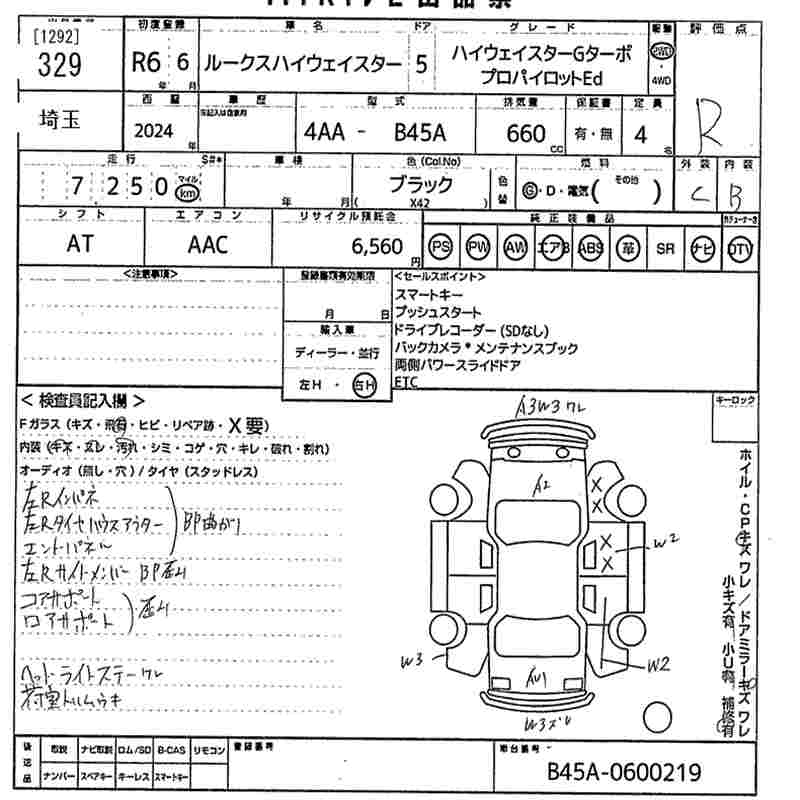 [1292]
初度登録 車名 ドア グレード 評価点
329 R6 6 ルークスハイウェイスター 5 ハイウェイスターGターボ
年 月 プロパイロットEd
2WD・4WD
R
埼玉 西暦 車歴 型式 排気量 保証書 定員
2024年 4AA - B45A 660CC 有・無 4名
走行 S#* 車検 色(Col.No) 燃料 外装 内装
7,250 マイル km 年 月 ブラック 色替 G・D・電気( その他 ) C B
( X42 )
シフト エアコン リサイクル預託金 純正装備品
AT AAC 6,560円 PS PW AW エアB ABS 革 SR ナビ DTV
<注意事項> 登録書類有効期限 <セールスポイント>
スマートキー
月 日 プッシュスタート
輸入車 ドライブレコーダー (SDなし)
ディーラー・並行 バックカメラ*メンテナンスブック
両側パワースライドドア
左H・右H ETC
<検査員記入欄> A3W3ワレ キーロック
Fガラス(キズ・飛石・ヒビ・リペア跡・X要)
内装(キズ・スレ・汚れ・シミ・コゲ・穴・キレ・破れ・割れ)
オーディオ(無し・穴)/タイヤ(スタッドレス)
左Rインパネ
左Rタイヤハウスアウター 即曲がり
エンドパネル
左Rサイドメンバー
コアサポート 歪み
ロアサポート
ヘッドライトステーワレ
A2
X
X
X
X
W2
W3
W2
AW1
W3ズレ
ホイル・CPキズ ワレ/ドアミラーキズ ワレ
小キズ有 小U有 補修有
後送品 取説 ナビ取説 ロム/SD B-CAS リモコン 登録番号 車台番号
ナンバー スペアキー キーレス スマートキー B45A-0600219